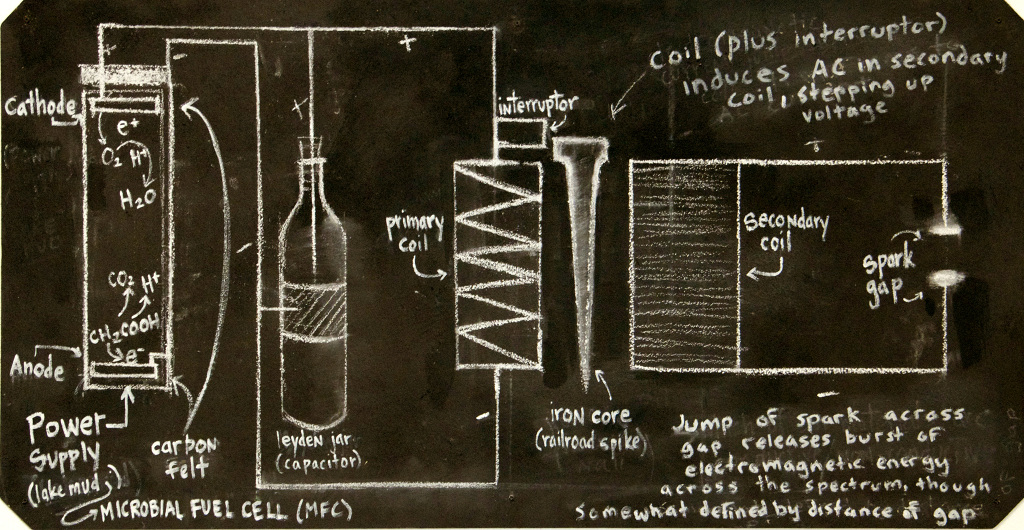 coil (plus interruptor)
induces AC in secondary
coil, stepping up
voltage
+
-
+
+
+
Cathode
e+
O2 H+
H2O
interruptor
primary
coil
secondary
coil
Spark
gap
-
CO2 H+
CH2COOH
e-
Anode
Power
Supply
(lake mud)
MICROBIAL FUEL CELL (MFC)
carbon
felt
leyden jar
(capacitor)
-
iron core
(railroad spike)
-
Jump of spark across
gap releases burst of
electromagnetic energy
across the spectrum, though
somewhat defined by distance of gap